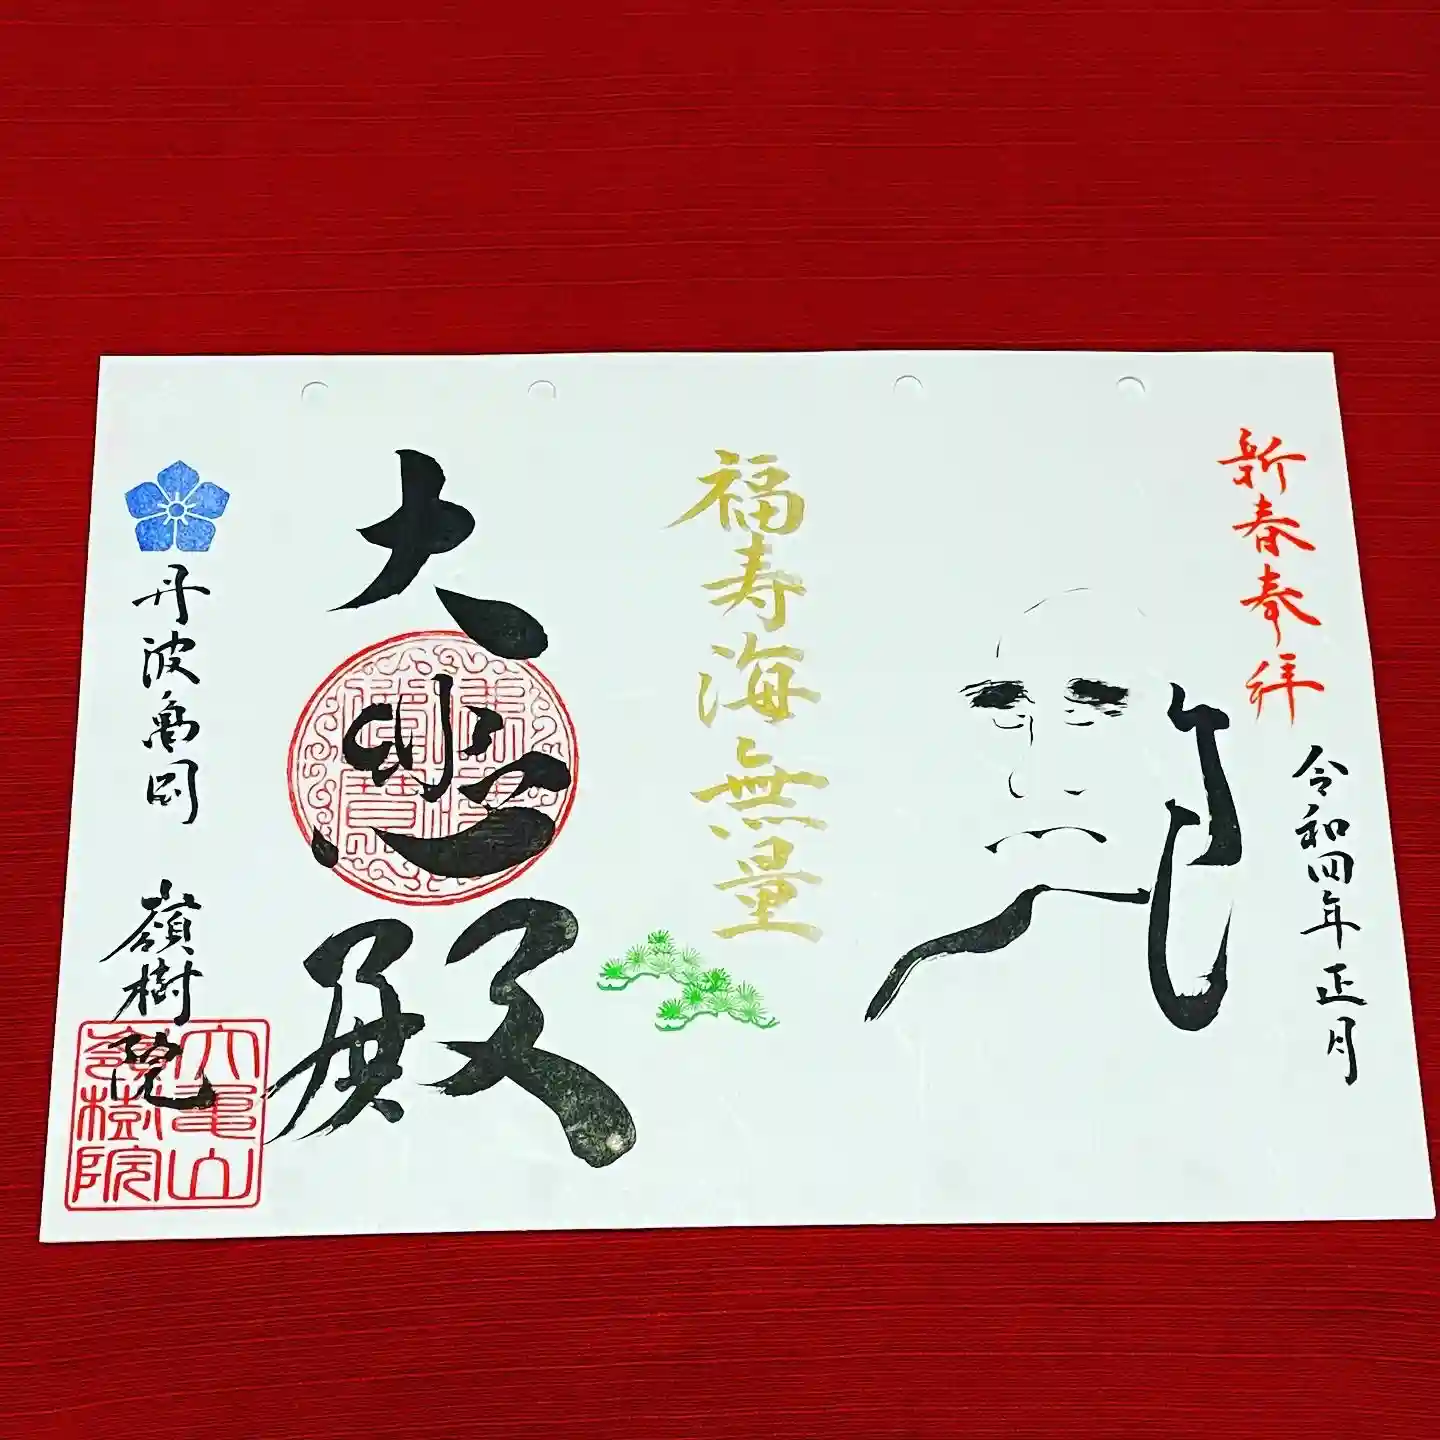 新春奉拝
令和四年正月
福寿海無量
大悲殿
丹波亀岡 嶺樹院
大亀山
嶺樹院